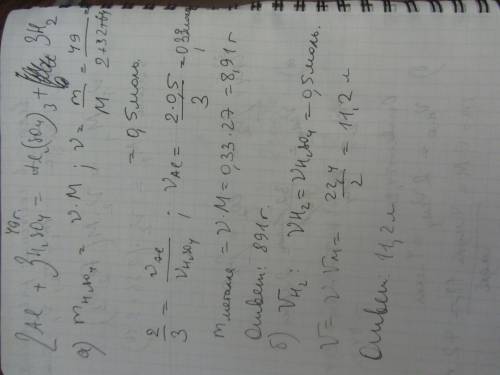 49г
2Al + 3H₂SO₄ = Al₂(SO₄)₃ + 3H₂
а) m H₂SO₄ = ν · M ; ν = m/M = 49/2+32+
= 0,5 моль.
2/3 = ν Al/ν H₂SO₄ ; ν Al = 2·0,5/3 = 0,33
m металла = ν · M = 0,33 · 27 = 8,91 г.
Ответ: 8,91 г.
б) V H₂ : ν H₂ = ν H₂SO₄ = 0,5 моль.
V = ν · Vм = 22,4/2 = 11,2 л
Ответ: 11,2 л